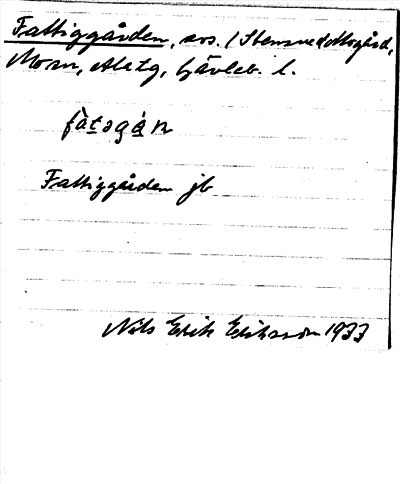 Fattiggården, avs. / Stensnedottsgård,
Moan, Al­sg, Gävleb. l.
fàtəgá̀n
Fattiggården jb
Nils Erik Eriksson 1933